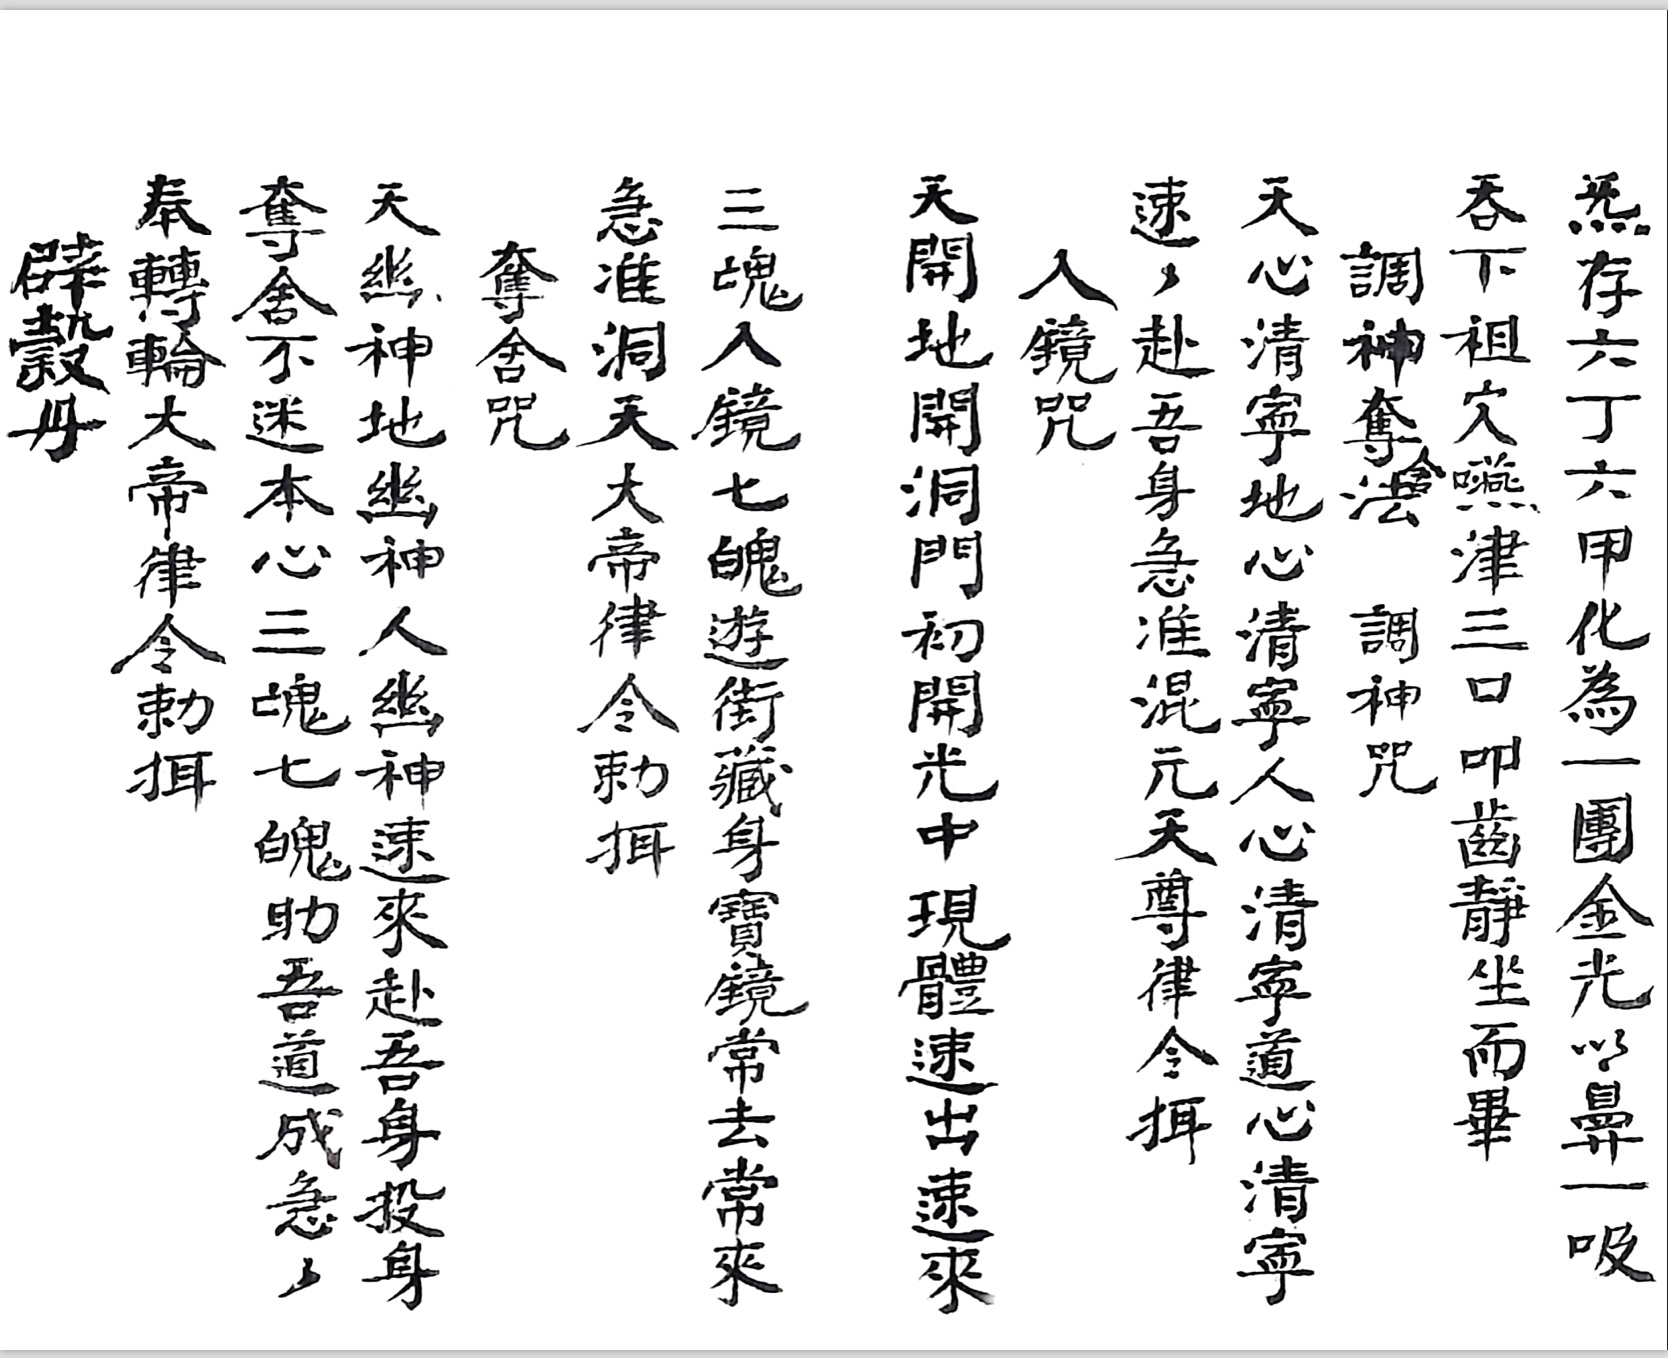 炁存六丁六甲化為一團金光以鼻一吸
吞下祖穴嚥津三口叩齒靜坐而畢
調神奪舍法　調神咒
天心清寧地心清寧人心清寧道心清寧
速〻赴吾身急准混元天尊律令挕
入鏡咒
天開地開洞門初開光中現體速出速來
三魂入鏡七魄遊街藏身寶鏡常去常來
急准洞天大帝律令勅挕
奪舍咒
天幽神地幽神人幽神速來赴吾身投身
奪舍不迷本心三魂七魄助吾道成急〻
奉轉輪大帝律令勅挕
辟穀丹